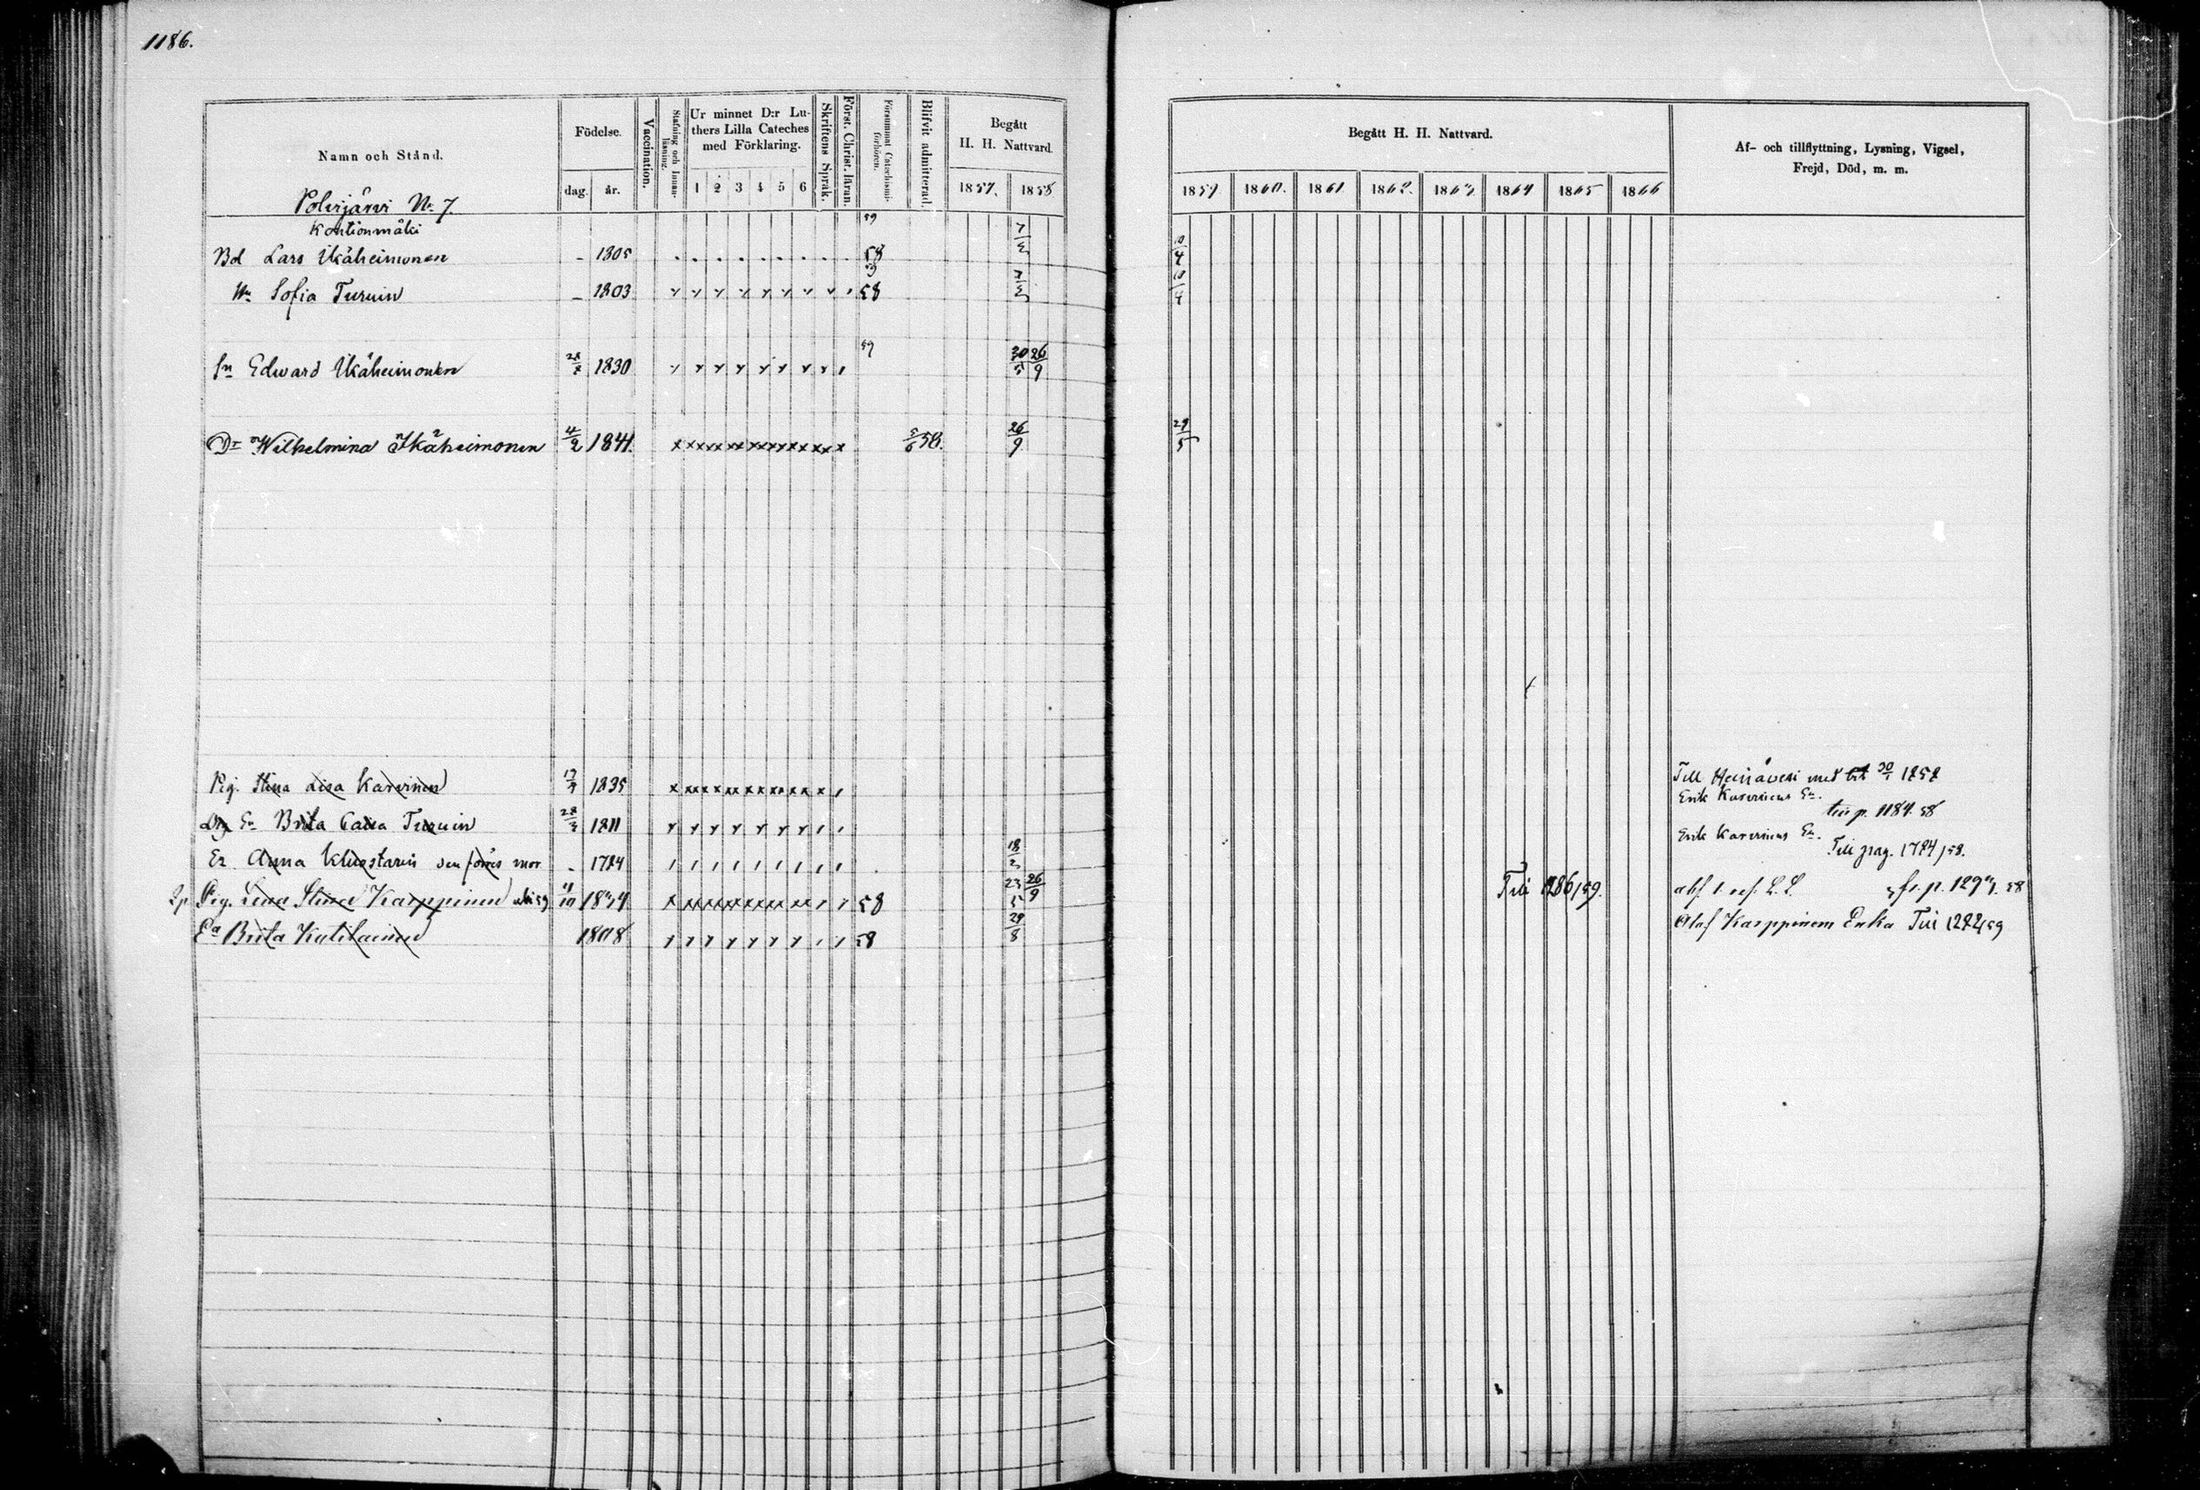 1186.
Namn och Stånd.
Födelse.
dag. år.
Vaccination.
Stafning och Innan-
läsning.
Ur minnet D:r Lu-
thers Lilla Cateches
med Förklaring.
1 2 3 4 5 6
Skriftens Språk.
Först. Christ. läran.
Försummat Catechismi-
förhören.
Blifvit admitterad.
Begått
H. H. Nattvard.
1857. 1858
Begått H. H. Nattvard.
1859 1860. 1861 1862. 1863 1864 1865 1866
Af- och tillflyttning, Lysning, Vigsel,
Frejd, Död, m. m.
Polvijärvi No 7.
Kontionmäki
Bd Lars Ikäheimonen - 1805 58 59
Hu Sofia Turuin - 1803 58 59
Sn Edward Ikäheimonen 1830 59 30/5 26/9
Dr Wilhelmina Ikäheimonen 4/2 1841. 5/6 58. 26/9 29/5
Pig. Stina Lisa Karvinen 1835 Till Heinävesi med bet 30/1 1858
Erik Karvinens En.
Brita Caisa Turuin 1811 till p. 1184. 58
Erik Karvinens En.
Anna Kluostarin den förres mor - 1784 18/2 Till pag. 1784/58.
Pig. Lena Stina Karppinen 11/10 1834 58 23/5 26/9 Till 1286/59. fr. p. 1297. 58
Ea Brita Kutilainen 1808 58 29/8 Olof Karppinens Enka Till 1282/59